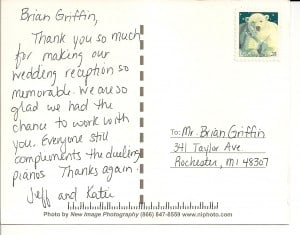 Brian Griffin,
Thank you so much
for making our
wedding reception so
memorable. We are so
glad we had the
chance to work with
you. Everyone still
compliments the dueling
pianos Thanks again.
Jeff and Katie
TO: Mr. Brian Griffin
341 Taylor Ave.
Rochester, MI 48307
Photo by New Image Photography (866) 847-8559 www.niphoto.com